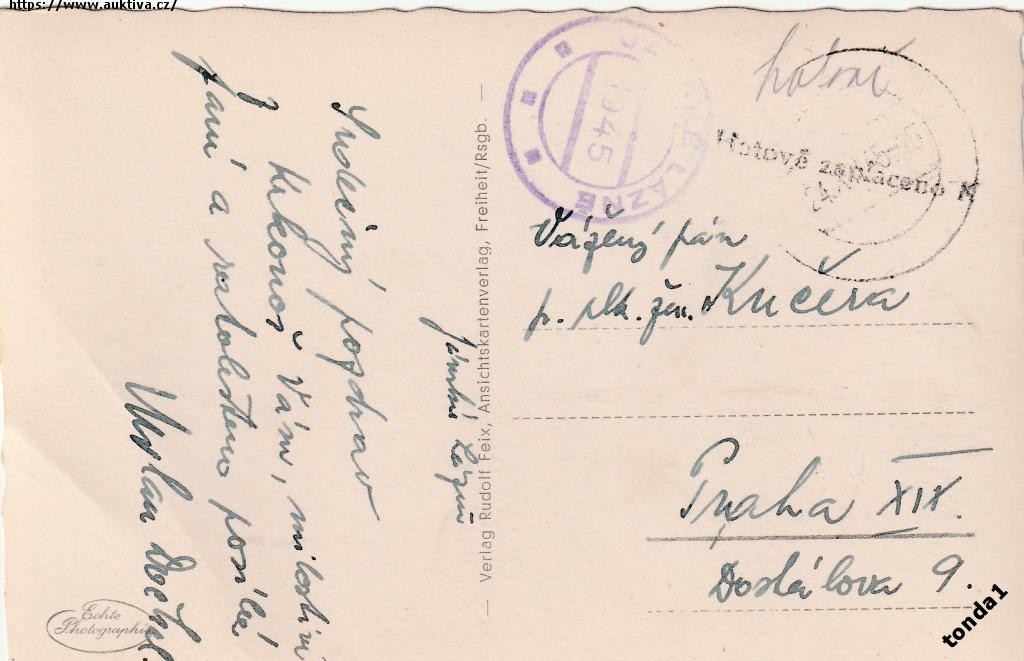 https://www.auktiva.cz/
Srdečný pozdrav
z Krkonoš Vám, milostivé
paní a ratolestem posílá
Janské Lázně
Echte
Photographie
— Verlag Rudolf Feix, Ansichtskartenverlag, Freiheit/Rsgb. —
1945
LÁZNĚ
hotově
Hotově zaplaceno
Vážený pán
p. plk. žen. Kučera
Praha XIX.
Dostálova 9.
tonda1